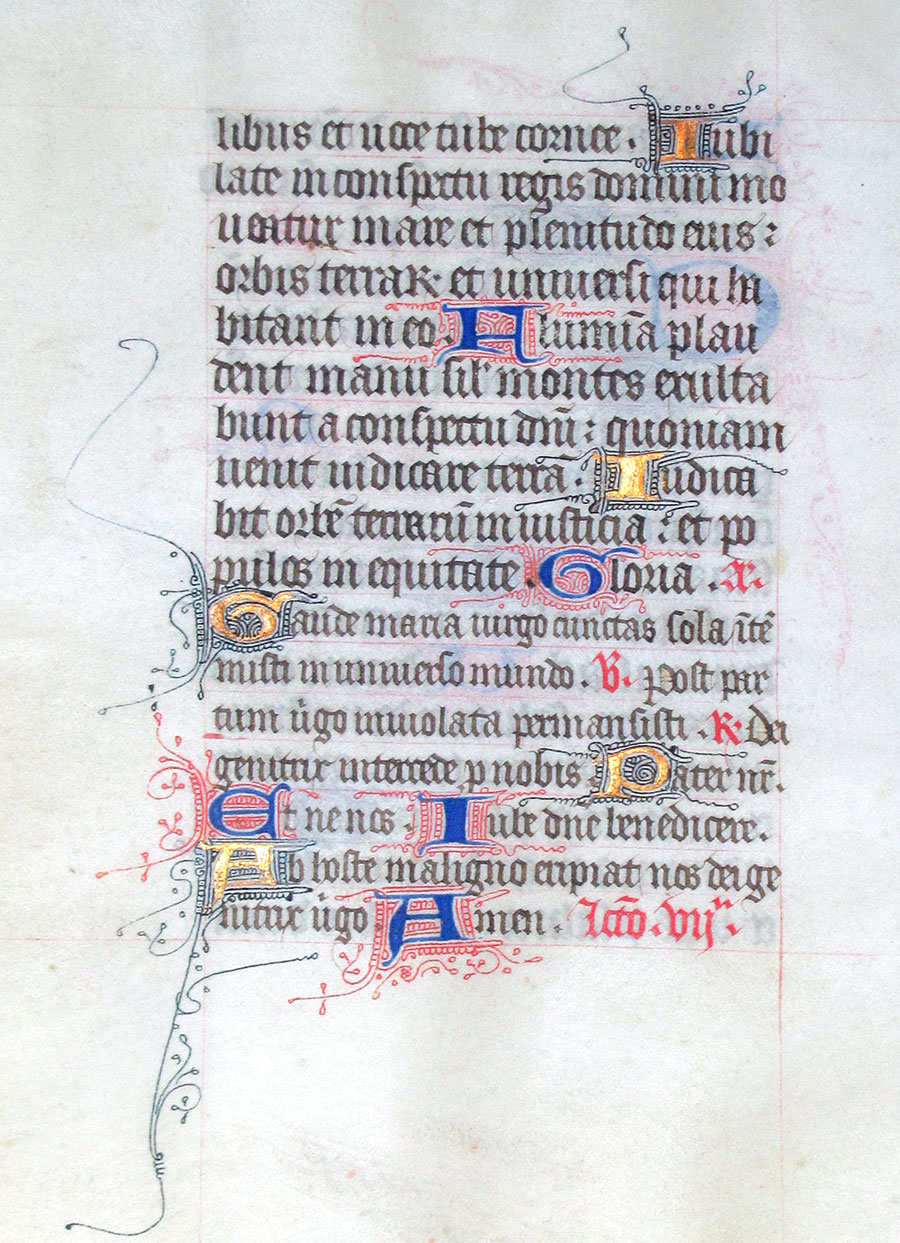 libus et uoce tube cornee. Iubi
late in conspectu regis domini mo
ueatur mare et plenitudo eius:
orbis terrar. et uniuersi qui ha
bitant in eo. Flumīa plau
dent manu sil' montes exulta
bunt a conspectu dn̄i: quoniam
uenit iudicare terrā. Iudica
bit orbē terrarū in iusticia: et po
pulos in equitate. Gloria. A.
Gaude maria uirgo cunctas sola īte
misti in uniuerso mundo. V. Post par
tum ūgo inuiolata permansisti. R. Dei
genitrix intercede p nobis Pater nr̄.
Et ne nos. Iube dn̄e benedicere.
Ab hoste maligno eripiat nos dei ge
nitrix ūgo Amen. Lc̄o. vij.